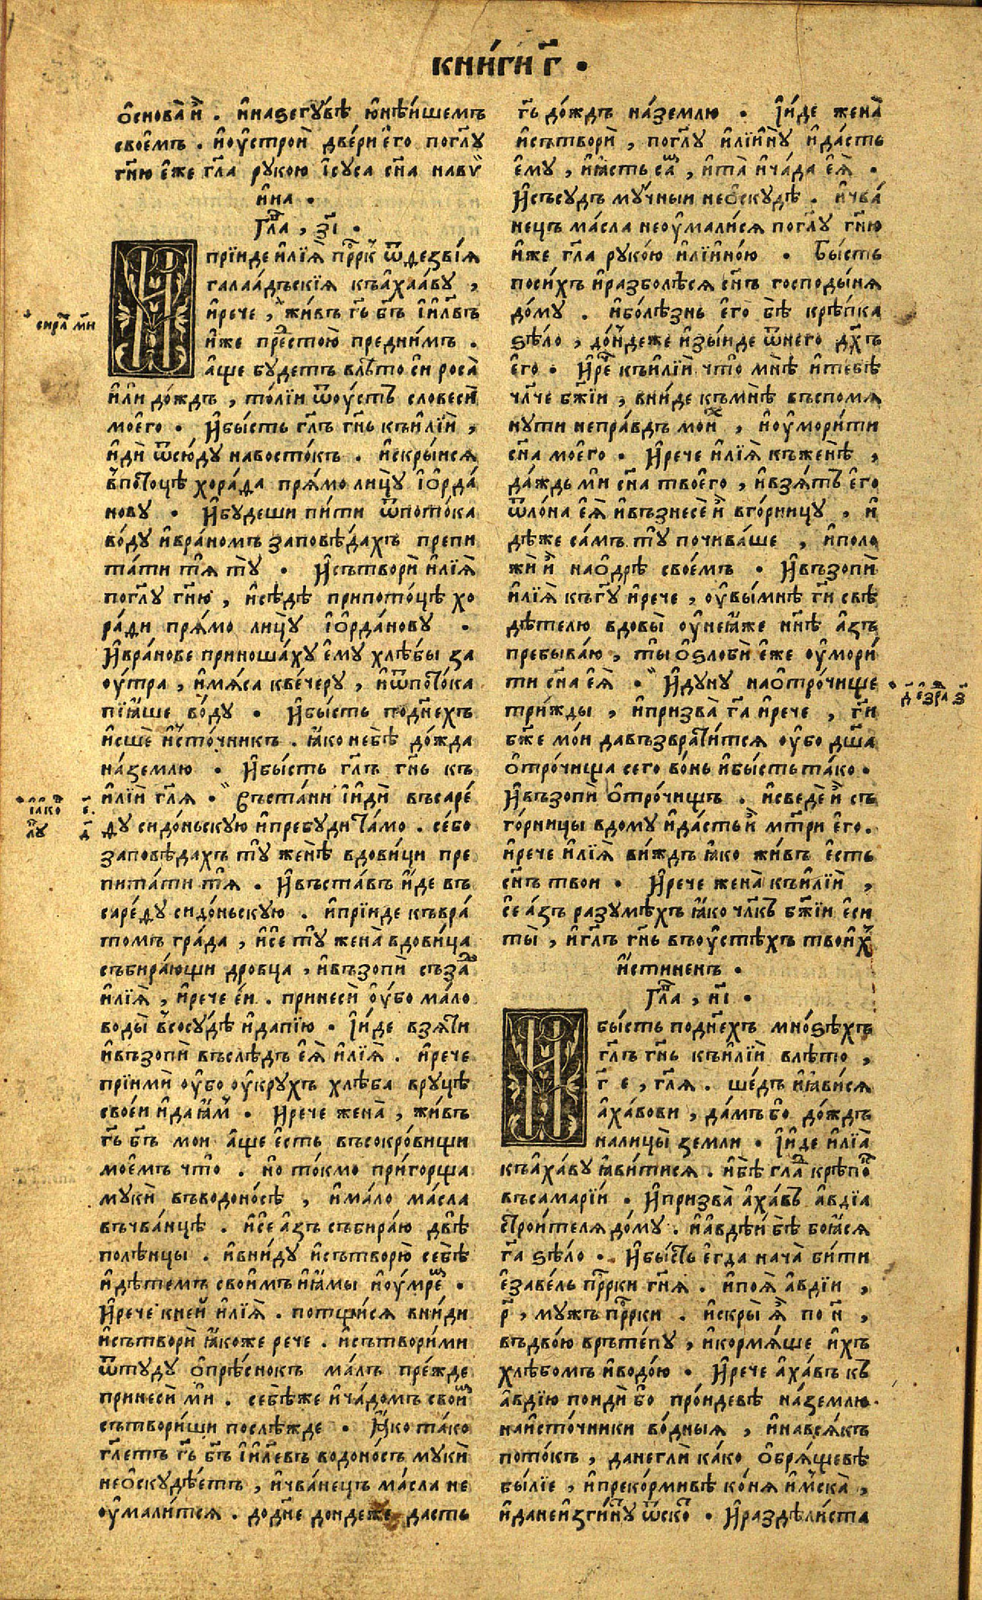 КНИ́ГИ Г҃ •
ѻ҆снова̀ и҆̀ . и҆наѕегꙋ́бѣ ю҆нѣ́йшемъ
свое́мъ . и҆оу҆строѝ две́ри є҆го̀ погл҃ꙋ
гн҃ю є҆́же гл҃а рꙋко́ю і҆сꙋ́са сн҃а навꙋ
и҆на .
Гла҃ , з҃і .
И прїи́де и҆лїѧ̀ прⷪ҇ркъ ѿдезві́ѧ
галаа́дъскїѧ къа҆хаа́вꙋ ,
и҆речѐ , жи́въ гь҃ бг҃ъ і҆и҃лвъ
и҆́же прⷣестою̀ преднⷨи́мъ .
а҆́ще бꙋ́детъ влѣ́то сѝ роса̀
и҆лѝ до́ждъ , то́лїи ѿоу҆́стъ словесѝ
моего̀ . И҆бы́сть гл҃ъ гн҃ь къи҆лїѝ ,
и҆дѝ ѿсю́дꙋ навосто́къ . и҆скры́исѧ
впото́цѣ хора́да прѧ́мо лицꙋ̀ і҆ѻ҆рда́
новꙋ . И҆бꙋ́деши пи́ти ѿпото́ка
во́дꙋ и҆вра́номъ заповѣ́дахъ препи
та́ти тѧ̀ тꙋ̀ . И҆сътворѝ и҆лїѧ̀
погл҃ꙋ гн҃ю , и҆сѣ́дѣ припото́цѣ хо
ра́ди прѧ́мо лицꙋ̀ і҆ѻ҆рда́новꙋ .
И҆вра́нове приноша́хꙋ є҆мꙋ̀ хлѣ́бы за
оу҆́тра , и҆мѧ́са кве́черꙋ , и҆ѿпото́ка
пїѧ́ше во́дꙋ . И҆бы́сть подн҃ехъ
и҆́сше и҆сто́чникъ . ꙗ҆́ко не бѣ̀ до́ждѧ
на́землю . И҆бы́сть гл҃ъ гн҃ь къ
и҆лїѝ гл҃ѧ . Въста́ни і҆и҆дѝ въсаре́
дꙋ сидо́ньскꙋю и҆пребꙋ́ди та́мо . се́бо
заповѣ́дахъ тꙋ̀ женѣ̀ вдови́ци пре
пита́ти тѧ̀ . И҆въста́въ и҆́де въ
саре́дꙋ сидо́ньскꙋю . и҆прїи́де къвра
томъ гра́да , и҆сѐ тꙋ̀ жена̀ вдови́ца
събира́ющи дро́вца , и҆възопѝ съза́дⷹ
и҆лїѧ̀ , и҆речѐ є҆́и . принесѝ оу҆́бо ма́ло
воды̀ всосꙋ́дѣ и҆дапїю̀ . І҆и҆́де взѧ́ти
и҆възопѝ въслѣ́дъ є҆ѧ̀ и҆лїѧ̀ . и҆речѐ
прїимѝ оу҆́бо оу҆крꙋ́хъ хлѣ́ба врꙋцѣ̀
свое́и и҆даꙗ҆́мъ . И҆речѐ жена̀ , жи́въ
гь҃ бг҃ъ мо́и а҆́ще є҆́сть въсокро́вищи
мое́мъ что̀ . но̀ то́кмо при́горща
мꙋкѝ въводоно́сѣ , и҆ма́ло ма́сла
въчва́нцѣ . и҆сѐ а҆́зъ събира́ю двѣ̀
полѣ́нцы . и҆вни́дꙋ и҆сътворю̀ себѣ̀
и҆дѣ́темъ свои́мъ и҆ꙗ҆мы̀ и҆оу҆́мремъ .
И҆речѐ кне́й и҆лїѧ̀ . потщи́сѧ вни́ди
и҆сътворѝ ꙗ҆́коже речѐ . и҆сътвори́ми
ѿтꙋ́дꙋ ѻ҆прѣ́снокъ ма́лъ пре́жде
принесѝ мѝ . себѣ́же и҆ча́домъ свои́мъ
сътвори́ши послѣ́жде . Ꙗ҆́ко та́ко
гл҃етъ гь҃ бг҃ъ і҆и҃левъ водоно́съ мꙋкѝ
неѻ҆скꙋдѣ́етъ , и҆чва́нецъ ма́сла не
оу҆мали́тсѧ . додн҃е до́ндеже да́стъ
гь҃ до́ждъ на́землю . І҆и҆́де жена̀
и҆сътворѝ , погл҃ꙋ и҆лїи́нꙋ и҆да́сть
є҆мꙋ̀ , и҆ꙗ҆́сть са́мъ , и҆та̀ и҆ча́да є҆ѧ̀ .
И҆съсꙋ́дъ мꙋ́чныи неѻ҆скꙋдѣ̀ . и҆чва́
нецъ ма́сла неоу҆мали́сѧ погл҃ꙋ гн҃ю
и҆́же гл҃а рꙋко́ю и҆лїи́ною . Бы́сть
поси́хъ и҆разболѣ́сѧ сн҃ъ господы́нѧ
до́мꙋ . и҆болѣ́знь є҆го̀ бѣ̀ крѣ́пка
ѕѣло̀ , до́ндеже и҆зы́иде ѿнего̀ дх҃ъ
є҆го̀ . И҆речⷺ къи҆лїѝ что̀ мнѣ̀ и҆тебѣ̀
чл҃че бж҃їи , вни́де къмнѣ̀ въспомѧ
нꙋ́ти непра́вдъ мои́хъ , и҆оу҆мори́ти
сн҃а моего̀ . И҆речѐ и҆лїѧ̀ къженѣ̀ ,
да́ждь мѝ сн҃а твоего̀ , и҆взѧ́тъ є҆го̀
ѿло́на є҆ѧ̀ и҆възнесѐ и҆̀ вго́рницꙋ , и҆
дѣ́же са́мъ тꙋ̀ почива́ше , и҆поло
жѝ и҆̀ наѻ҆дрѣ̀ свое́мъ . И҆възопѝ
и҆лїѧ̀ къгꙋ҃ и҆речѐ , оу҆вы́мнѣ гн҃и свѣ
дѣ́телю вдовы̀ оу҆неѧ́же нн҃ѣ а҆́зъ
пребыва́ю , ты̀ ѻ҆ѕло́би є҆́же оу҆мори́
ти сн҃а є҆ѧ̀ . И҆дꙋ́нꙋ наѻ҆тро́чище
три́жды , и҆призва̀ гⷭ҇а и҆речѐ , гн҃и
бж҃е мо́и давъзврати́тсѧ оу҆́бо дш҃а
ѻ҆тро́чища сего̀ во́нь и҆бы́сть та́ко .
И҆възопѝ ѻ҆тро́чищъ . и҆сведѐ и҆̀ съ
го́рницы вдомꙋ̀ и҆да́сть и҆̀ мт҃ри є҆го̀ .
и҆речѐ и҆лїѧ̀ ви́ждъ ꙗ҆́ко жи́въ є҆́сть
сн҃ъ твои . И҆речѐ жена̀ къи҆лїѝ ,
се а҆́зъ разꙋмѣ́хъ ꙗ҆́ко чл҃къ бж҃їи є҆сѝ
ты̀ , и҆гл҃ъ гн҃ь въоу҆стѣ́хъ твои́хъ
и҆́стиненъ .
Гла҃ , и҃і .
И бы́сть подн҃ехъ мно́ѕѣхъ
гл҃ъ гн҃ь къи҆лїѝ влѣ́то ,
г҃ е , гл҃ѧ . ше́дъ и҆ꙗ҆ви́сѧ
а҆ха́вови , да́мъ бо̀ до́ждъ
налицы̀ землѝ . І҆и҆́де и҆лїа̀
къа҆ха́вꙋ ꙗ҆ви́тисѧ . и҆бѣ̀ гла́дъ крѣ́покъ
въсамарі́и . И҆призва̀ а҆ха́въ а҆вді́а
строи́телѧ до́мꙋ . и҆а҆вде́й бѣ̀ боѧ́сѧ
га҃ ѕѣло̀ . И҆бы́сть є҆гда̀ нача̀ би́ти
є҆заве́ль прⷪ҇рки гн҃ѧ . и҆поѧ̀ а҆вді́и ,
р҃ , мꙋ́жъ прⷪ҇рки . и҆скры̀ ѧ҆̀ по н҃ ,
въдвою̀ врътепꙋ̀ , и҆кормѧ́ше и҆́хъ
хлѣ́бомъ и҆водо́ю . И҆речѐ а҆ха́въ къ
а҆вді́ю поидѝ бо̀ про́идевѣ на́землю
наи҆сто́чники во́дныѧ , и҆навсѧ́къ
пото́къ , данеглѝ ка́ко ѻ҆брѧ́щевѣ
бы́лїе , и҆прекорми́вѣ ко́нѧ и҆мска̀ ,
и҆данеи҆зги́нꙋ ѿско́тъ . И҆раздѣли́ста
сира́ мⷬ҇и
і҆а́ков є҃.
лꙋ д҃
д҃ є҆зра з҃